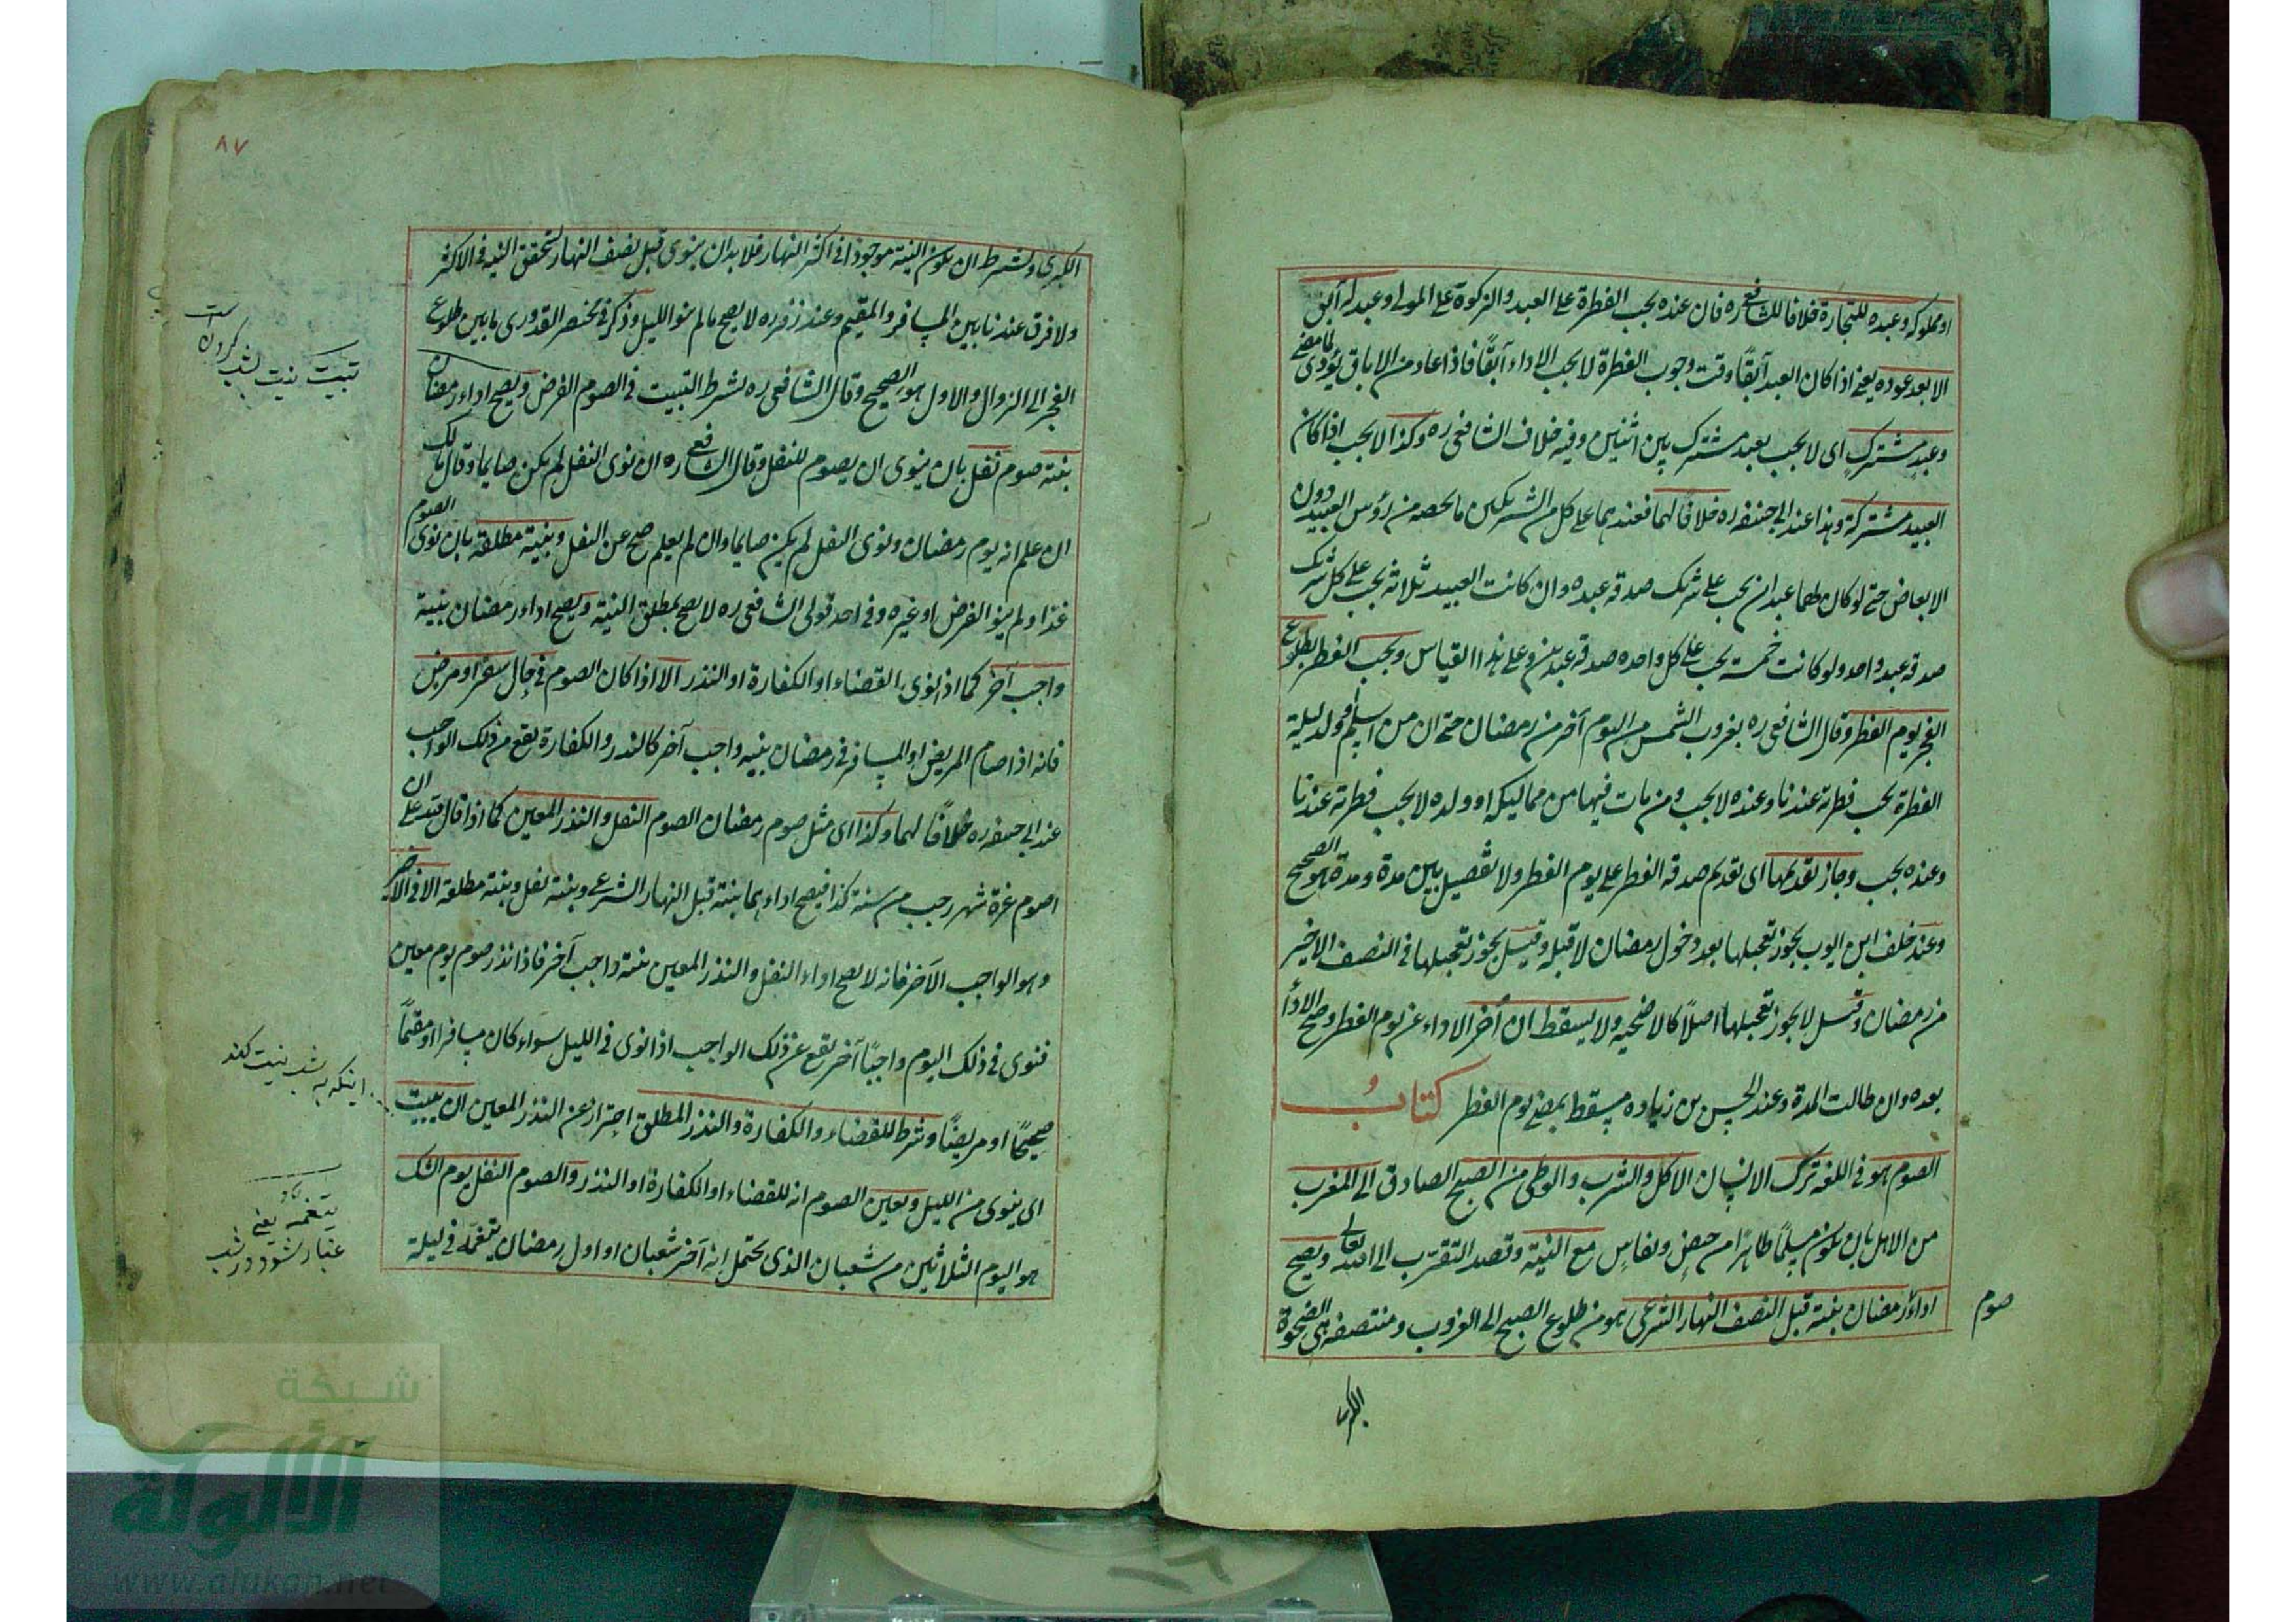 او مملوكه وعبده للتجارة خلافا للشافعى ره فان عنده يجب الفطرة على العبد والزكوة على المولى وعبد له آبق
الا بعد عوده يعنى اذا كان العبد آبقًا وقت وجوب الفطرة لا يجب الاداء آبقًا فاذا عاد من الاباق يؤدى لما مضى
وعبد مشترك اى لا يجب بعبد مشترك بين اثنين وفيه خلاف الشافعى ره وكذا لا يجب اذا كان
العبيد مشتركة وهذا عند ابى حنيفه ره خلافًا لهما فعندهما على كل من الشريكين ما يخصه من رؤس العبيد دون
الابعاض حتى لو كان لهما عبدان يجب على شريك صدقه عبده وان كانت العبيد ثلاثه يجب على كل شريك
صدقه عبد واحد ولو كانت خمسة يجب على كل واحد صدقه عبدين وعلى هذا القياس ويجب الفطر بطلوع
الفجر يوم الفطر وقال الشافعى ره بغروب الشمس من اليوم آخر من رمضان حتى ان من اسلم او ولد ليلة
الفطرة يجب فطرته عندنا وعنده لا يجب ومن مات فيها من مماليكه او ولده لا يجب فطرته عندنا
وعنده يجب وجاز تقديمها اى تقديم صدقه الفطر على يوم الفطر ولا تفصيل بين مدة ومدة هو الصحيح
وعند خلف ابن ايوب يجوز تعجيلها بعد دخول رمضان لا قبله وقيل يجوز تعجيلها فى النصف الاخير
من رمضان وقيل لا يجوز تعجيلها اصلاً كالاضحيه ولا يسقط ان أخر الاداء عن يوم الفطر وصح الادأ
بعده وان طالت المدة وعند الحسن بن زياده يسقط بمضى يوم الفطر كتاب
الصوم هو فى اللغه ترك الانسان الاكل والشرب والوطى من الصبح الصادق الى المغرب
من الاهل بان يكون مسلمًا طاهرًا من حيض ونفاس مع النية وقصد التقرب الى الله تعالى ويصح
صوم
اداء رمضان بنية قبل النصف النهار الشرعى هو من طلوع الصبح الى الغروب ومنتصفه هى الضحوة
الكبرى
٨٧
الكبرى ويشترط ان يكون النية موجودا فى اكثر النهار فلا بد ان ينوى قبل نصف النهار لتحقق النيه فى الاكثر
ولا فرق عندنا بين المسافر والمقيم وعند زفر ره لا يصح ما لم ينو الليل وذكر فى مختصر القدورى ما بين طلوع
الفجر الى الزوال والاول هو الصحيح وقال الشافعى ره يشترط التبيت فى الصوم الفرض ويصح اداء رمضان
بنية صوم نفل بان ينوى ان يصوم للنفل وقال الشافعى ره ان نوى النفل لم يكن صايما وقال مالك
ان علم انه يوم رمضان ونوى النفل لم يكن صايما وان لم يعلم صح عن النفل وبنية مطلقة بان نوى الصوم
غدا ولم ينو الفرض او غيره وفى احد قولى الشافعى ره لا يصح بمطلق النية ويصح اداء رمضان بنية
واجب آخر كما اذا نوى القضاء او الكفارة او النذر الا اذا كان الصوم فى حال سفر او مرض
فانه اذا صام المريض او المسافر فى رمضان بنيه واجب آخر كالنذر والكفارة يقع من ذلك الواجب
عند ابى حنيفه ره خلافًا لهما وكذا اى مثل صوم رمضان الصوم النفل والنذر المعين كما اذا قال لله على ان
اصوم غرة شهر رجب من سنة كذا فيصح اداءهما بنية قبل النهار الشرعى وبنية نفل وبنية مطلقة الا فى الاخير
وهو الواجب الآخر فانه لا يصح اداء النفل والنذر المعين بنية واجب آخر فاذا نذر صوم يوم معين
فنوى فى ذلك اليوم واجبًا آخر يقع عن ذلك الواجب اذا نوى فى الليل سواء كان مسافرا او مقيمًا
صحيحًا او مريضًا وشرط للقضاء والكفارة والنذر المطلق احتراز عن النذر المعين ان يبيت
اى ينوى من الليل ويعين الصوم انه للقضاء او الكفارة او النذر والصوم النفل يوم الشك
هو اليوم الثلاثين من شعبان الذى يحتمل انه آخر شعبان او اول رمضان يتغمه فى ليلة
تبيت نيت بشب كردن است
اينكه به شب نيت كند
يتغمه يعنى
غبار شود در شب
شبكة
الألوكة
www.alukah.net